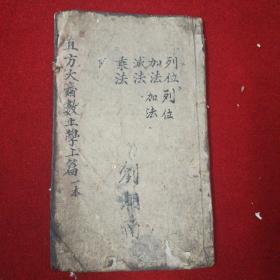 列位 列位
加法 加法
減法
乘法
劉
直方大齋數上學上篇 一本